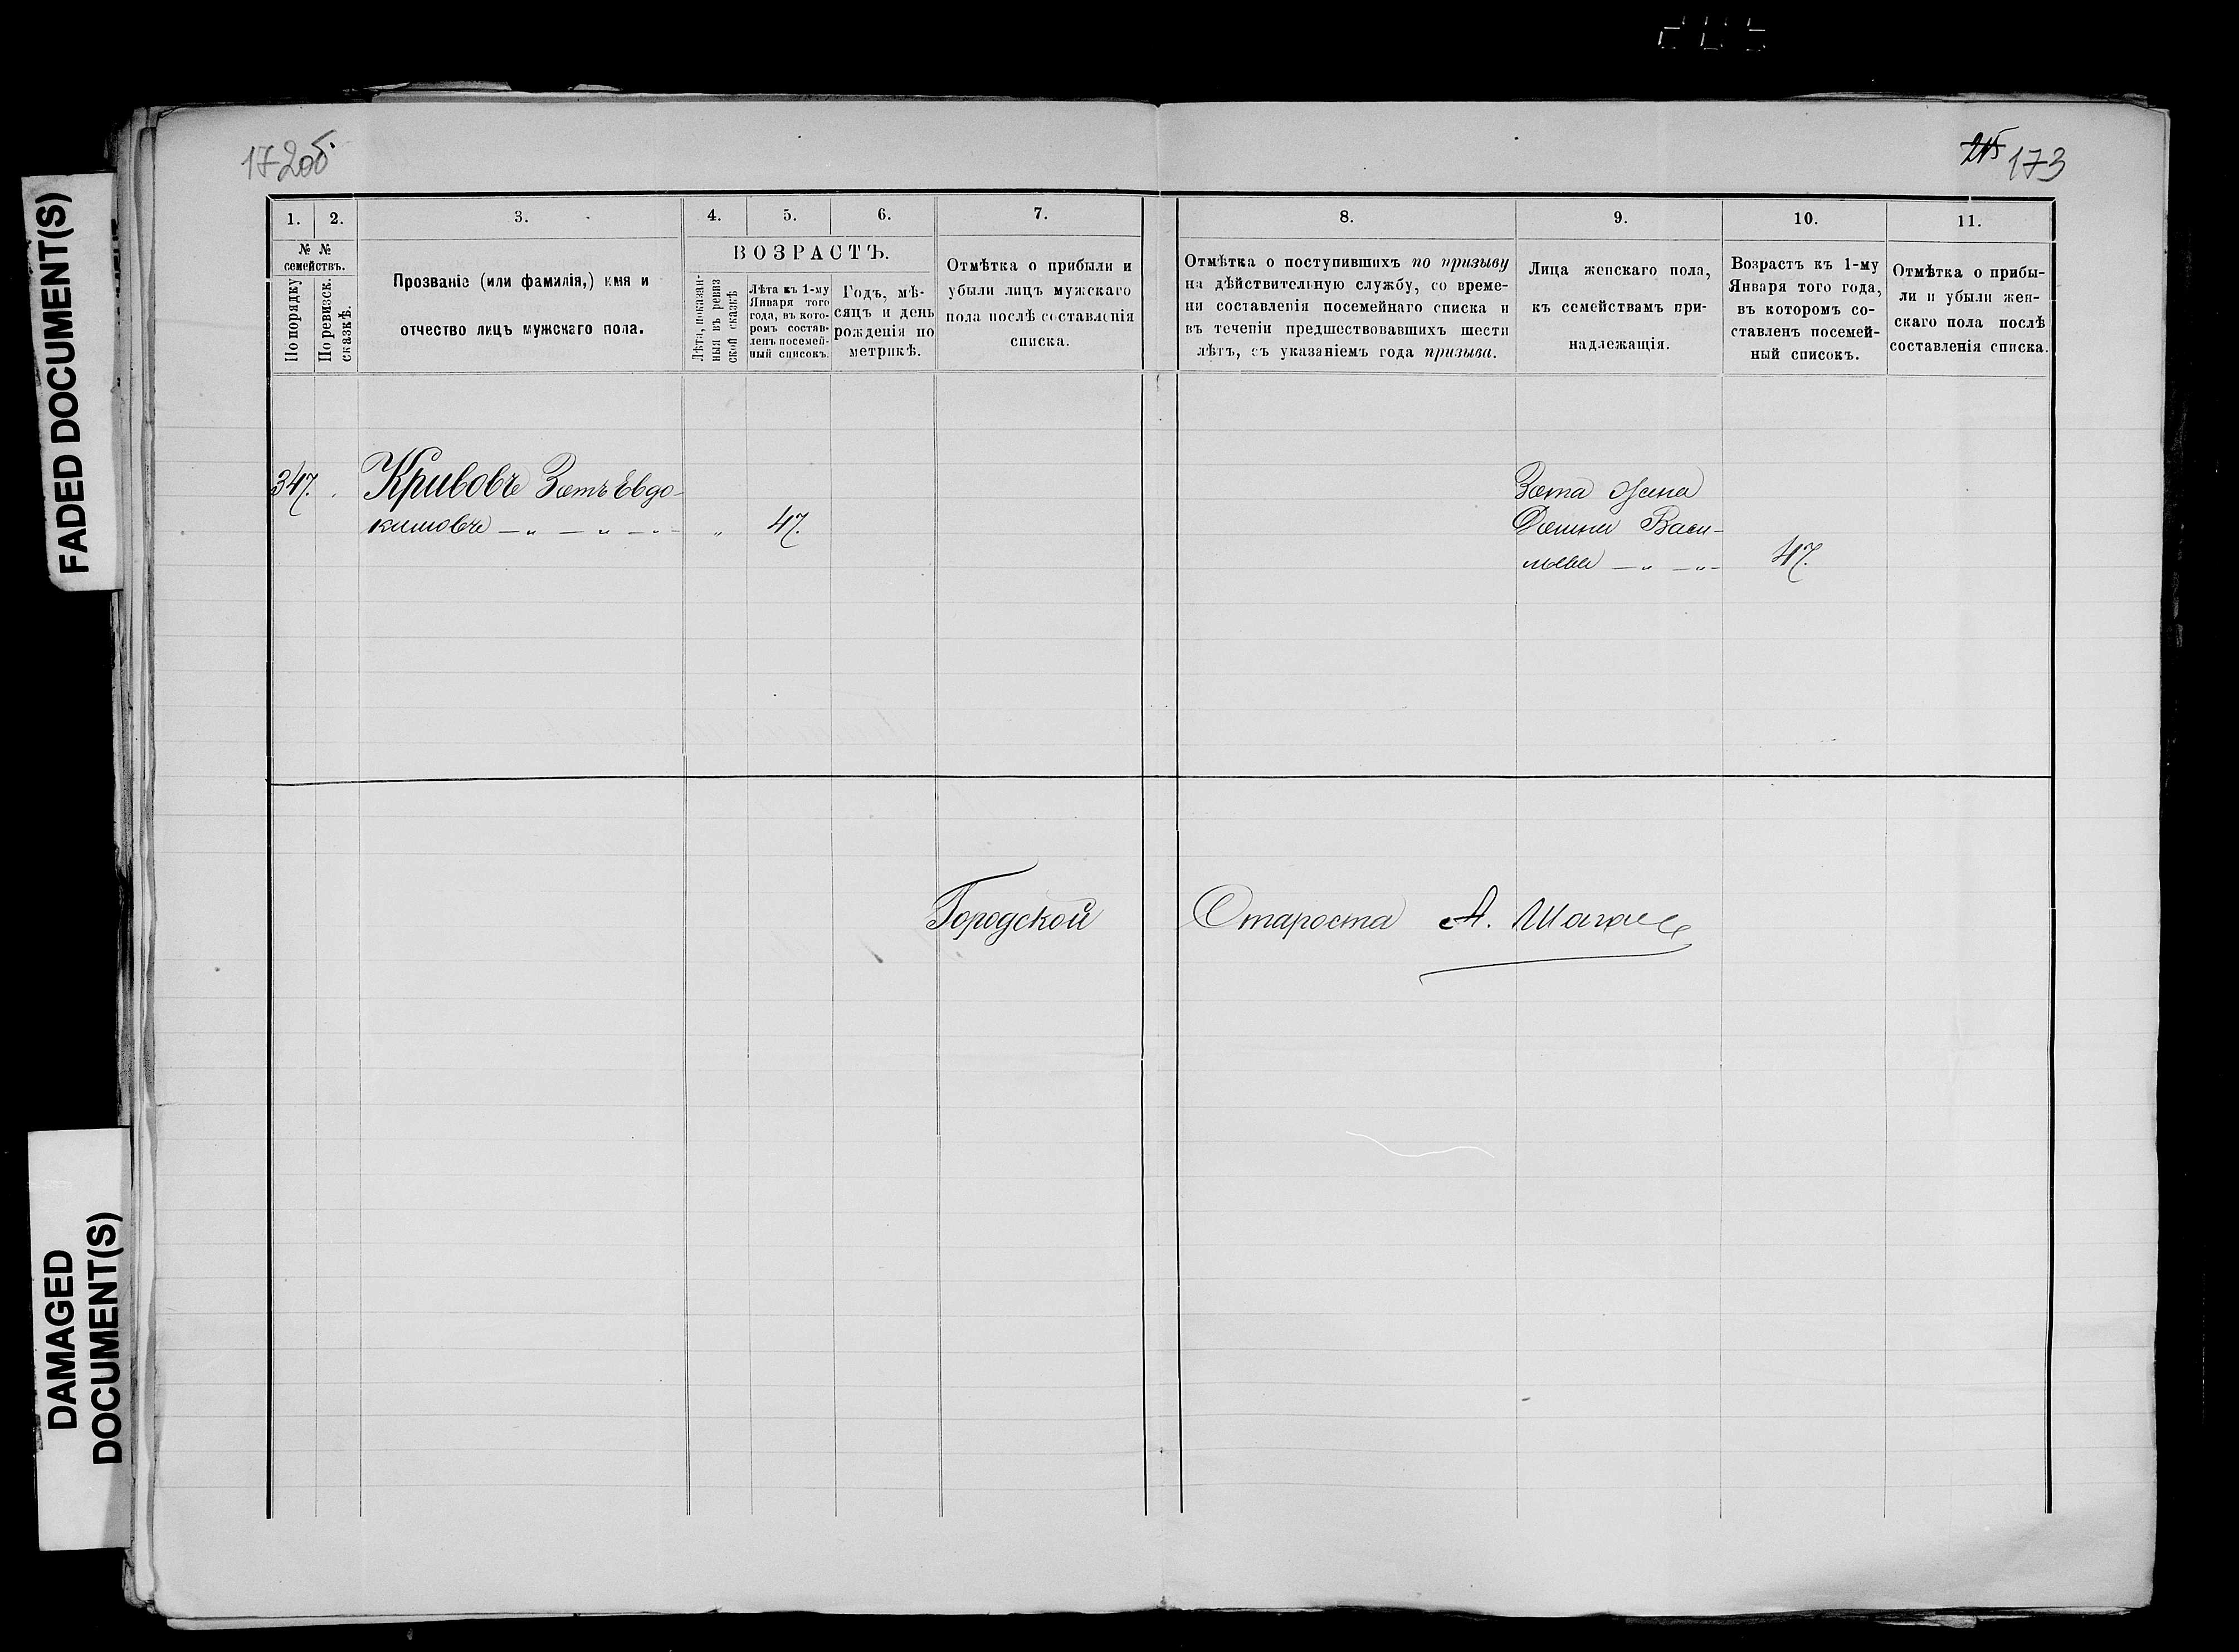 172об.
215 173
FADED DOCUMENT(S)
DAMAGED
DOCUMENT(S)
1. 2. 3. 4. 5. 6. 7. 8. 9. 10. 11.
№ №
семействъ.
По порядку
По ревизск.
сказкѣ.
Прозваніе (или фамилія,) имя и
отчество лицъ мужскаго пола.
ВОЗРАСТЪ.
Лѣта, показан-
ныя въ ревиз
ской сказкѣ
Лѣта къ 1-му
Января того
года, въ кото-
ромъ состав-
ленъ посемей-
ный списокъ.
Годъ, мѣ-
сяцъ и день
рожденія по
метрикѣ.
Отмѣтка о прибыли и
убыли лицъ мужскаго
пола послѣ составленія
списка.
Отмѣтка о поступившихъ по призыву
на дѣйствительную службу, со време-
ни составленія посемейнаго списка и
въ теченіи предшествовавшихъ шести
лѣтъ, съ указаніемъ года призыва.
Лица женскаго пола,
къ семействамъ при-
надлежащія.
Возрастъ къ 1-му
Января того года,
въ которомъ со-
ставленъ посемей-
ный списокъ.
Отмѣтка о прибы-
ли и убыли жен-
скаго пола послѣ
составленія списка.
347. Кривовъ Зотъ Евдо-
кимовъ — „ — „ — „ — „ 47.
Зота жена
Васи-
льева — „ — „ — 47.
Городской Староста А.